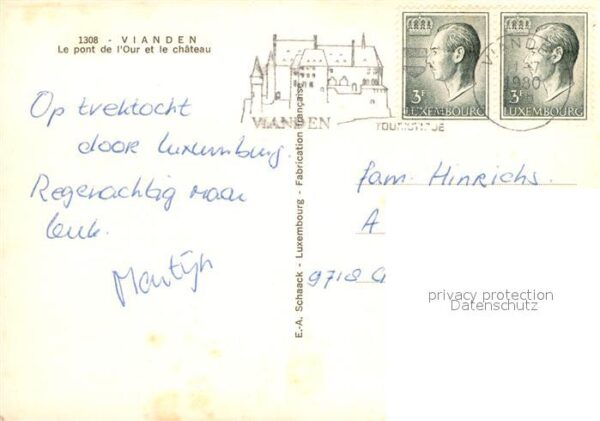 1308 - VIANDEN
Le pont de l'Our et le château
Op trektocht
door Luxemburg.
Regenachtig maar
leuk.
Martijn
E.-A. Schaack - Luxembourg - Fabrication française
VIANDEN
VIANDEN
1980
3F
LUXEMBOURG
3F
LUXEMBOURG
fam. Hinrichs.
A
9718 G
privacy protection
Datenschutz